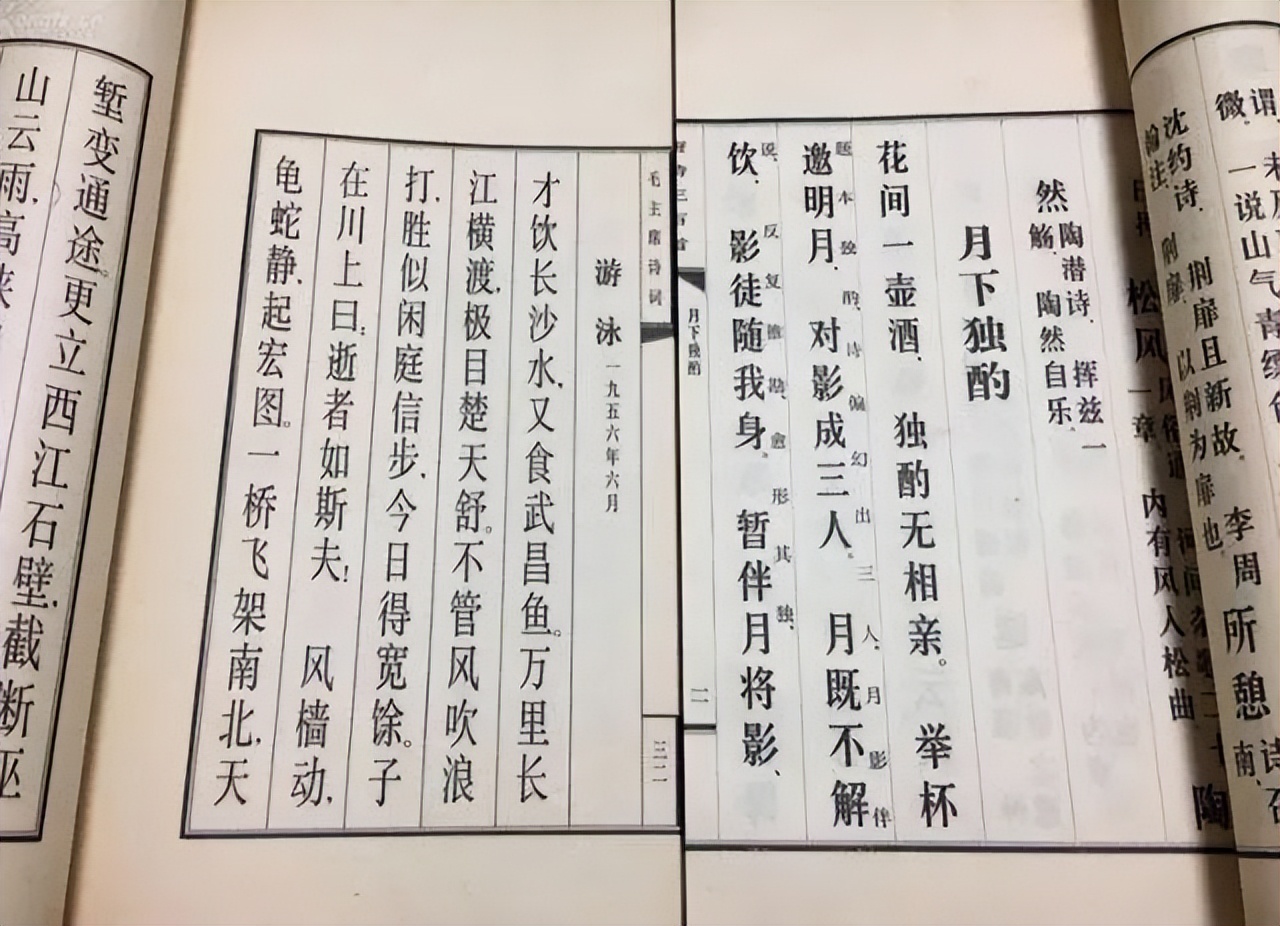 谓
微。一说山气青缥
沈约诗、荆扉且新故。李周
翰注、荆扉、以荆为扉也。
所憩
诗召
南、
松风一章
内有风人松曲
陶
然
陶潜诗、挥兹一
觞、陶然自乐、
月下独酌
花间一壶酒、独酌无相亲。举杯
邀明月、对影成三人。月既不解
题本独酌、诗偏幻出三人、月影伴
饮、影徒随我身。暂伴月将影、
说、反复推勘、愈形其独、
唐诗三百首
月下独酌
一
毛主席诗词
游泳 一九五六年六月
才饮长沙水，又食武昌鱼。万里长
江横渡，极目楚天舒。不管风吹浪
打，胜似闲庭信步，今日得宽馀。子
在川上曰：逝者如斯夫！ 风樯动，
龟蛇静，起宏图。一桥飞架南北，天
堑变通途。更立西江石壁，截断巫
山云雨，高峡